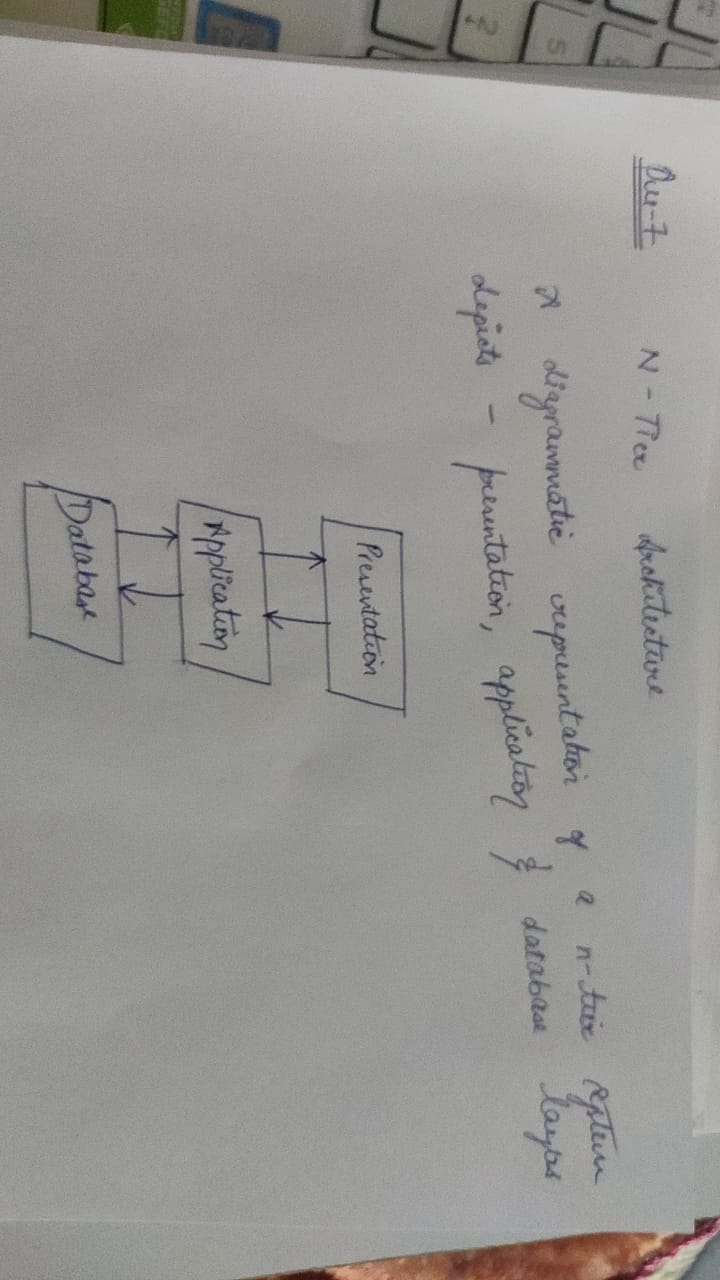 Que-7 N-Tier Architecture
A diagrammatic representation of a n-tier system
depicts - presentation, application & database layers
Presentation
Application
Database
S
?